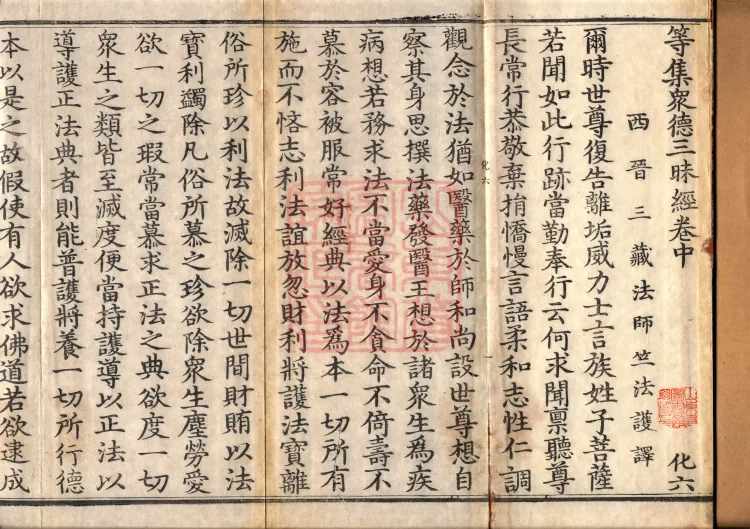 等集衆德三昧經卷中
化六
西晉三藏法師竺法護譯
爾時世尊復告離垢威力士言族姓子菩薩
若聞如此行跡當勤奉行云何求聞禀聽尊
長常行恭敬棄捐憍慢言語柔和志性仁調
化六
觀念於法猶如醫藥於師和尚設世尊想自
察其身思撰法藥發醫王想於諸衆生爲疾
病想若務求法不當愛身不貪命不倚壽不
慕於容被服常好經典以法爲本一切所有
施而不悋志利法誼放忽財利將護法寶離
俗所珍以利法故滅除一切世間財賄以法
寶利蠲除凡俗所慕之珍欲除衆生塵勞愛
欲一切之瑕常當慕求正法之典欲度一切
衆生之類皆至滅度便當持護導以正法以
導護正法典者則能普護將養一切所行德
本以是之故假使有人欲求佛道若欲逮成